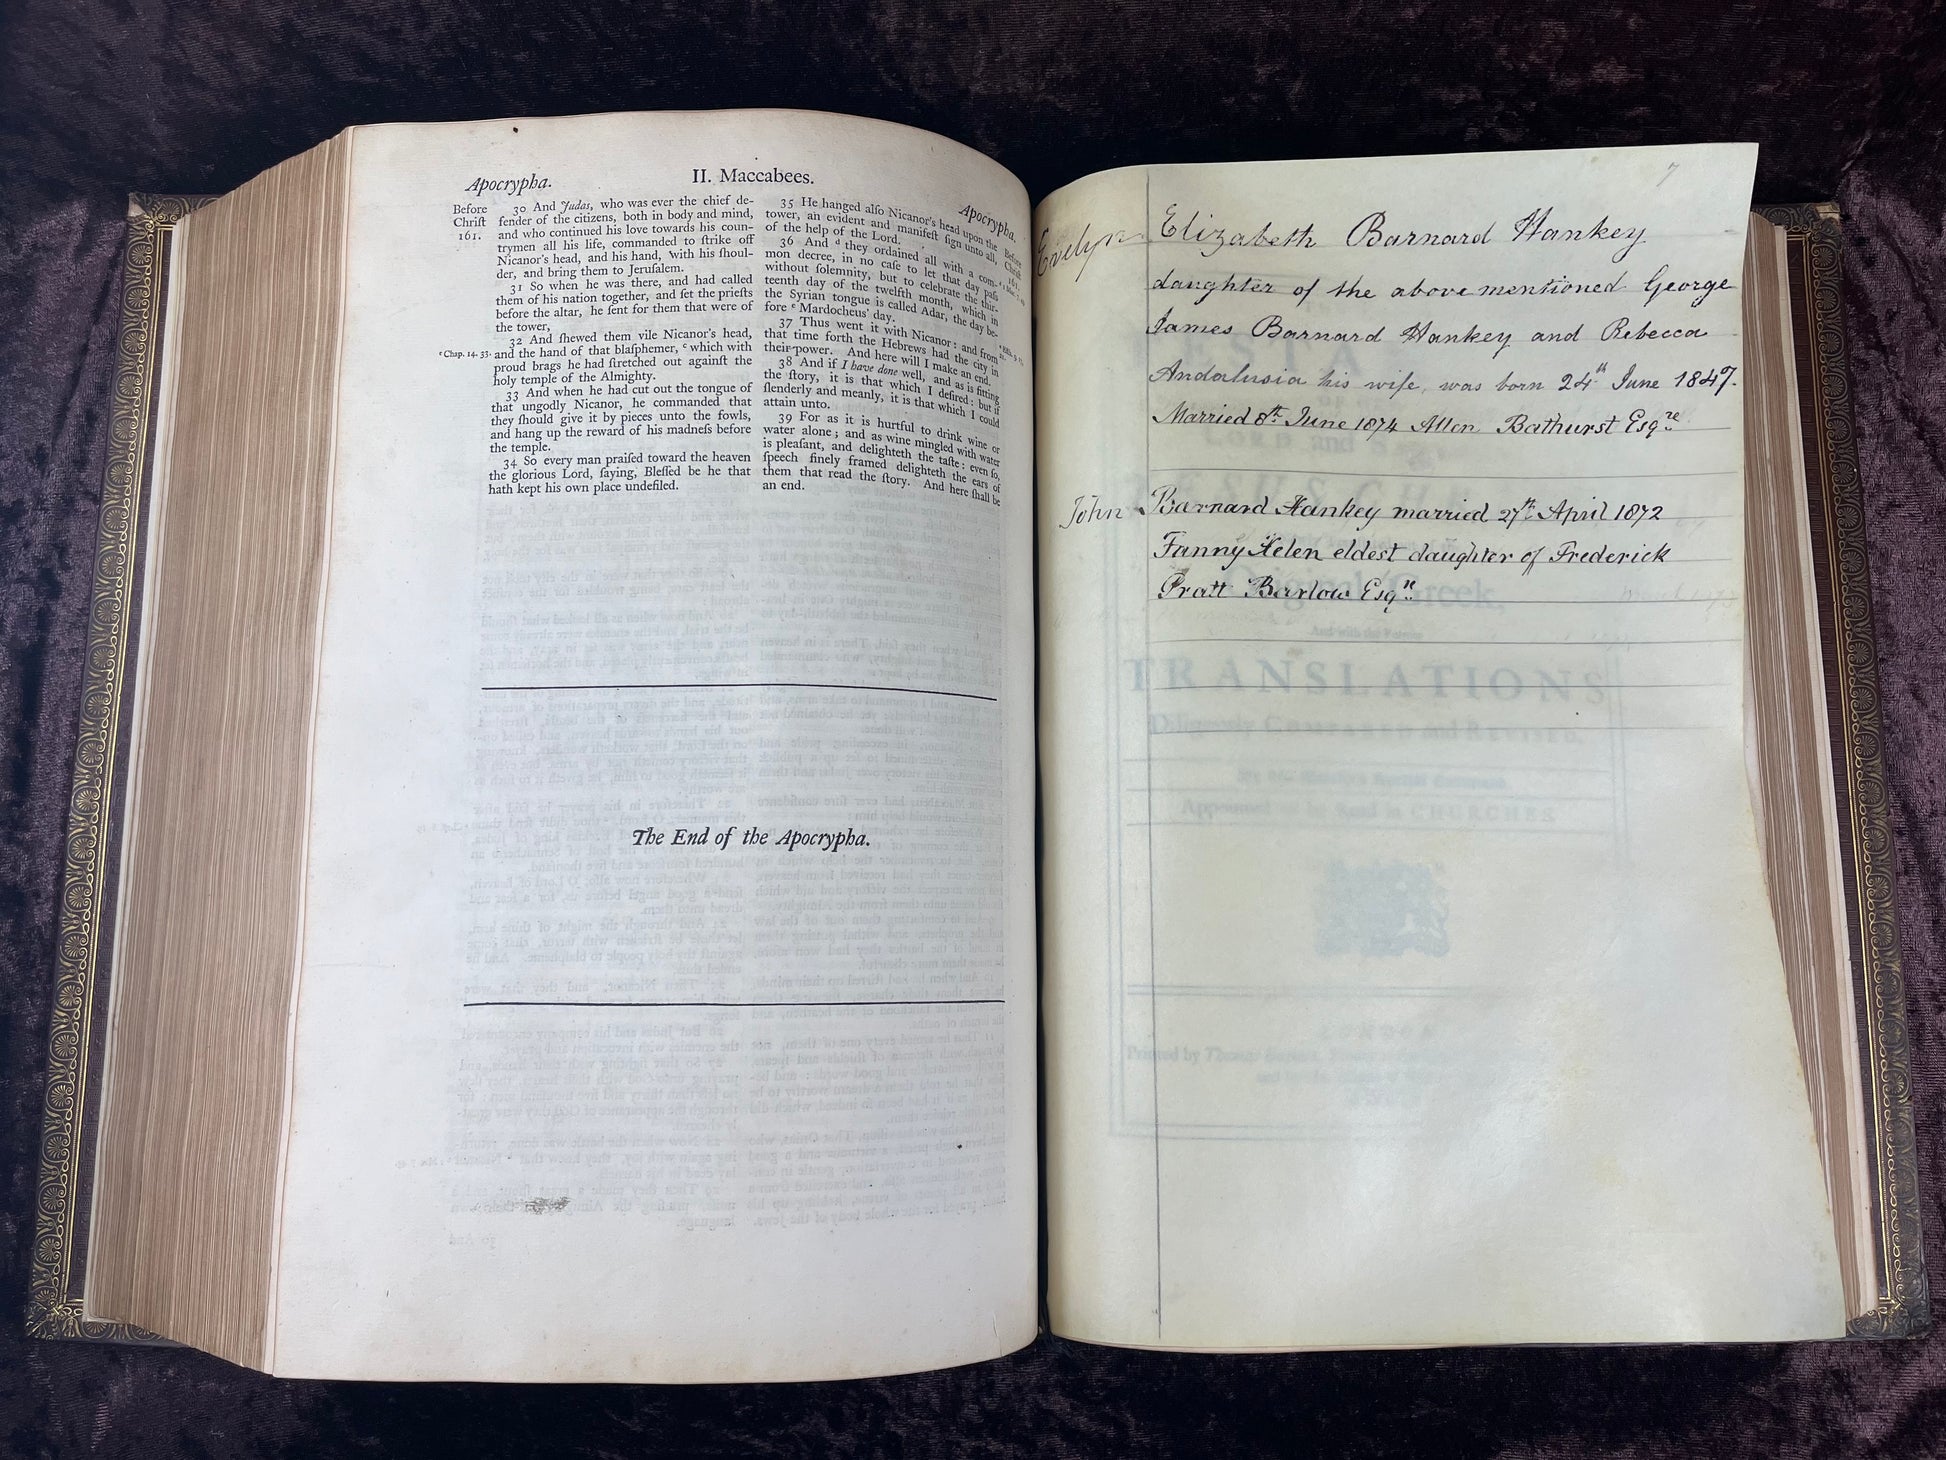 Apocrypha.
II. Maccabees.
Apocrypha.
Before
Chriſt
161.
30 And Judas, who was ever the chief de-
fender of the citizens, both in body and mind,
and who continued his love towards his coun-
trymen all his life, commanded to ſtrike off
Nicanor's head, and his hand, with his ſhoul-
der, and bring them to Jeruſalem.
31 So when he was there, and had called
them of his nation together, and ſet the prieſts
before the altar, he ſent for them that were of
the tower,
32 And ſhewed them vile Nicanor's head,
c Chap. 14. 33.
and the hand of that blaſphemer, c which with
proud brags he had ſtretched out againſt the
holy temple of the Almighty.
33 And when he had cut out the tongue of
that ungodly Nicanor, he commanded that
they ſhould give it by pieces unto the fowls,
and hang up the reward of his madneſs before
the temple.
34 So every man praiſed toward the heaven
the glorious Lord, ſaying, Bleſſed be he that
hath kept his own place undefiled.
35 He hanged alſo Nicanor's head upon the
tower, an evident and manifeſt ſign unto all,
of the help of the Lord.
36 And d they ordained all with a com-
mon decree, in no caſe to let that day paſs
without ſolemnity, but to celebrate the thir-
teenth day of the twelfth month, which in
the Syrian tongue is called Adar, the day be-
fore e Mardocheus' day.
37 Thus went it with Nicanor: and from
that time forth the Hebrews had the city in
their power. And here will I make an end.
38 And if I have done well, and as is fitting
the ſtory, it is that which I deſired: but if
ſlenderly and meanly, it is that which I could
attain unto.
39 For as it is hurtful to drink wine or
water alone; and as wine mingled with water
is pleaſant, and delighteth the taſte: even ſo,
ſpeech finely framed delighteth the ears of
them that read the ſtory. And here ſhall be
an end.
Before
Chriſt
161.
The End of the Apocrypha.
7
Evelyn Elizabeth Barnard Hankey
daughter of the above mentioned George
James Barnard Hankey and Rebecca
Andalusia his wife, was born 24th June 1847.
Married 8th June 1874 Allen Bathurst Esqre
John Barnard Hankey married 27th April 1872
Fanny Helen eldest daughter of Frederick
Pratt Barlow Esqre